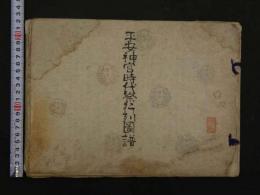 平安神宮時代祭行列図譜